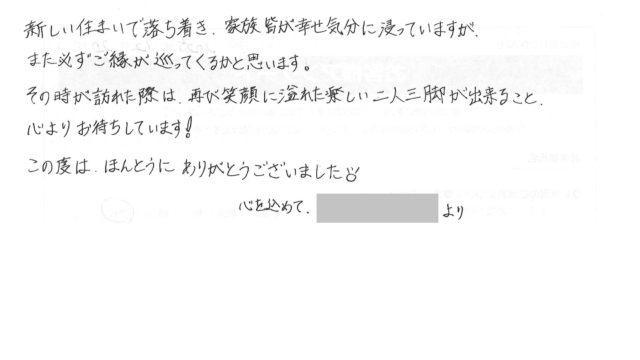 新しい住まいで落ち着き、家族皆が幸せ気分に浸っていますが、
また必ずご縁が巡ってくるかと思います。
その時が訪れた際は、再び笑顔に溢れた楽しい二人三脚が出来ること、
心よりお待ちしています!
この度は、ほんとうにありがとうございました
心を込めて、
より